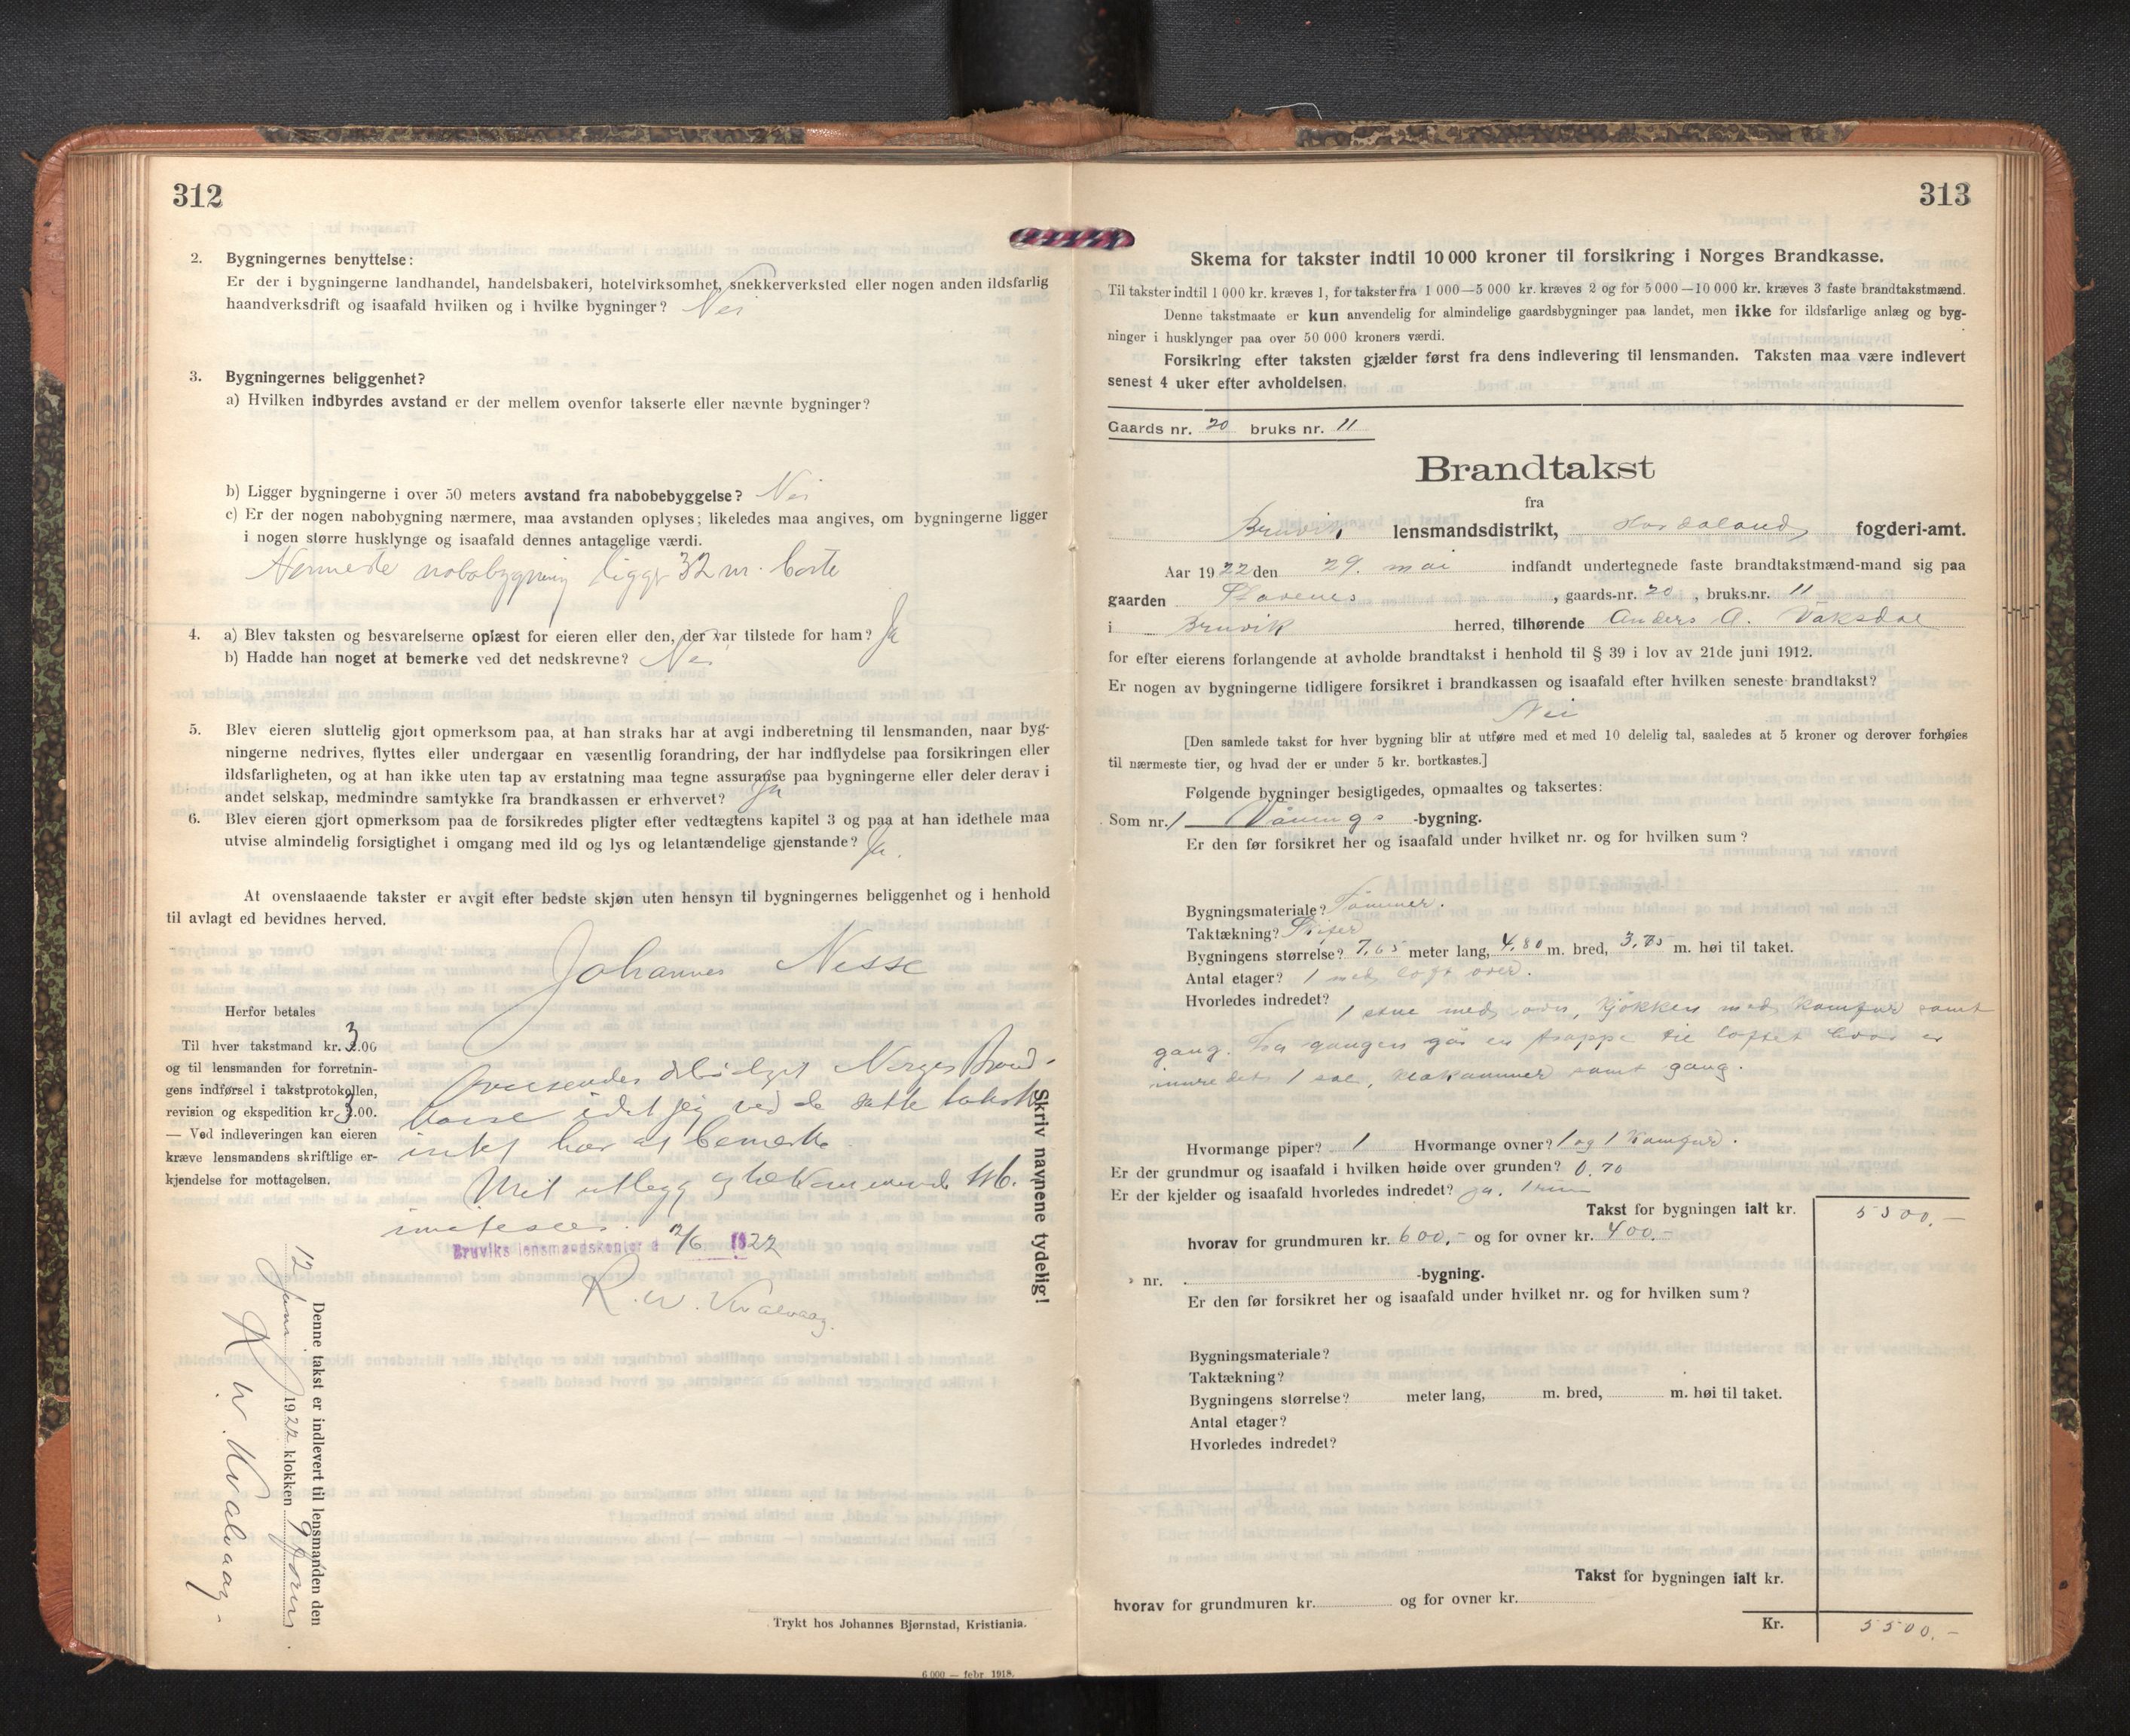 312
2. Bygningernes benyttelse:
Er der i bygningerne landhandel, handelsbakeri, hotelvirksomhet, snekkerverksted eller nogen anden ildsfarlig
haandverksdrift og isaafald hvilken og i hvilke bygninger? Nei
3. Bygningernes beliggenhet?
a) Hvilken indbyrdes avstand er der mellem ovenfor takserte eller nævnte bygninger?
b) Ligger bygningerne i over 50 meters avstand fra nabobebyggelse? Nei
c) Er der nogen nabobygning nærmere, maa avstanden oplyses; likeledes maa angives, om bygningerne ligger
i nogen større husklynge og isaafald dennes antagelige værdi.
Nermeste nabobygning ligger 32 m. borte
4. a) Blev taksten og besvarelserne oplæst for eieren eller den, der var tilstede for ham? Ja
b) Hadde han noget at bemerke ved det nedskrevne? Nei
5. Blev eieren sluttelig gjort opmerksom paa, at han straks har at avgi indberetning til lensmanden, naar byg-
ningerne nedrives, flyttes eller undergaar en væsentlig forandring, der har indflydelse paa forsikringen eller
ildsfarligheten, og at han ikke uten tap av erstatning maa tegne assuranse paa bygningerne eller deler derav i
andet selskap, medmindre samtykke fra brandkassen er erhvervet? Ja
6. Blev eieren gjort opmerksom paa de forsikredes pligter efter vedtægtens kapitel 3 og paa at han idethele maa
utvise almindelig forsigtighet i omgang med ild og lys og letantændelige gjenstande? Ja.
At ovenstaaende takster er avgit efter bedste skjøn uten hensyn til bygningernes beliggenhet og i henhold
til avlagt ed bevidnes herved.
Johannes Nesse
Herfor betales
Til hver takstmand kr. 3.00
og til lensmanden for forretnin-
gens indførsel i takstprotokollen,
revision og ekspedition kr. 3.00.
— Ved indleveringen kan eieren
kræve lensmandens skriftlige er-
kjendelse for mottagelsen.
Norges Brand-
kasse idet jeg ved de satte takster
intet har at bemerke.
Mit utlegg
Bruviks lensmandskontor d 12/6 1922
R. W. Kvalvaag.
Skriv navnene tydelig!
Denne takst er indlevert til lensmanden den
12 Juni 1922 klokken 9 form
R. W. Kvalvaag.
Trykt hos Johannes Bjørnstad, Kristiania.
6 000 — febr. 1918.
313
Skema for takster indtil 10 000 kroner til forsikring i Norges Brandkasse.
Til takster indtil 1 000 kr. kræves 1, for takster fra 1 000—5 000 kr. kræves 2 og for 5 000—10 000 kr. kræves 3 faste brandtakstmænd.
Denne takstmaate er kun anvendelig for almindelige gaardsbygninger paa landet, men ikke for ildsfarlige anlæg og byg-
ninger i husklynger paa over 50 000 kroners værdi.
Forsikring efter taksten gjælder først fra dens indlevering til lensmanden. Taksten maa være indlevert
senest 4 uker efter avholdelsen.
Gaards nr. 20 bruks nr. 11
Brandtakst
fra
Bruvik lensmandsdistrikt, Hordaland fogderi-amt.
Aar 1922 den 29. mai indfandt undertegnede faste brandtakstmænd-mand sig paa
gaarden Stavenes, gaards-nr. 20, bruks-nr. 11
i Bruvik herred, tilhørende Anders A. Vaksdal
for efter eierens forlangende at avholde brandtakst i henhold til § 39 i lov av 21de juni 1912.
Er nogen av bygningerne tidligere forsikret i brandkassen og isaafald efter hvilken seneste brandtakst?
Nei
[Den samlede takst for hver bygning blir at utføre med et med 10 delelig tal, saaledes at 5 kroner og derover forhøies
til nærmeste tier, og hvad der er under 5 kr. bortkastes.]
Følgende bygninger besigtigedes, opmaaltes og taksertes:
Som nr. 1 Vånings -bygning.
Er den før forsikret her og isaafald under hvilket nr. og for hvilken sum?
Bygningsmateriale? Tømmer.
Taktækning? Skifer
Bygningens størrelse? 7,65 meter lang, 4,80 m. bred, 3,75 m. høi til taket.
Antal etager? 1 med loft over.
Hvorledes indredet? 1 stue med ovn, kjøkken med komfur samt
gang. Fra gangen går en trappe til loftet hvor er
innredet 1 sal, kleskammer samt gang.
Hvormange piper? 1 Hvormange ovner? 1 og 1 komfur.
Er der grundmur og isaafald i hvilken høide over grunden? 0,70
Er der kjelder og isaafald hvorledes indredet? ja, 1 rum
Takst for bygningen ialt kr. 5500.—
hvorav for grundmuren kr. 600,- og for ovner kr. 400.-
» nr. -bygning.
Er den før forsikret her og isaafald under hvilket nr. og for hvilken sum?
Bygningsmateriale?
Taktækning?
Bygningens størrelse? meter lang, m. bred, m. høi til taket.
Antal etager?
Hvorledes indredet?
Takst for bygningen ialt kr.
hvorav for grundmuren kr. og for ovner kr.
Kr. 5500.—